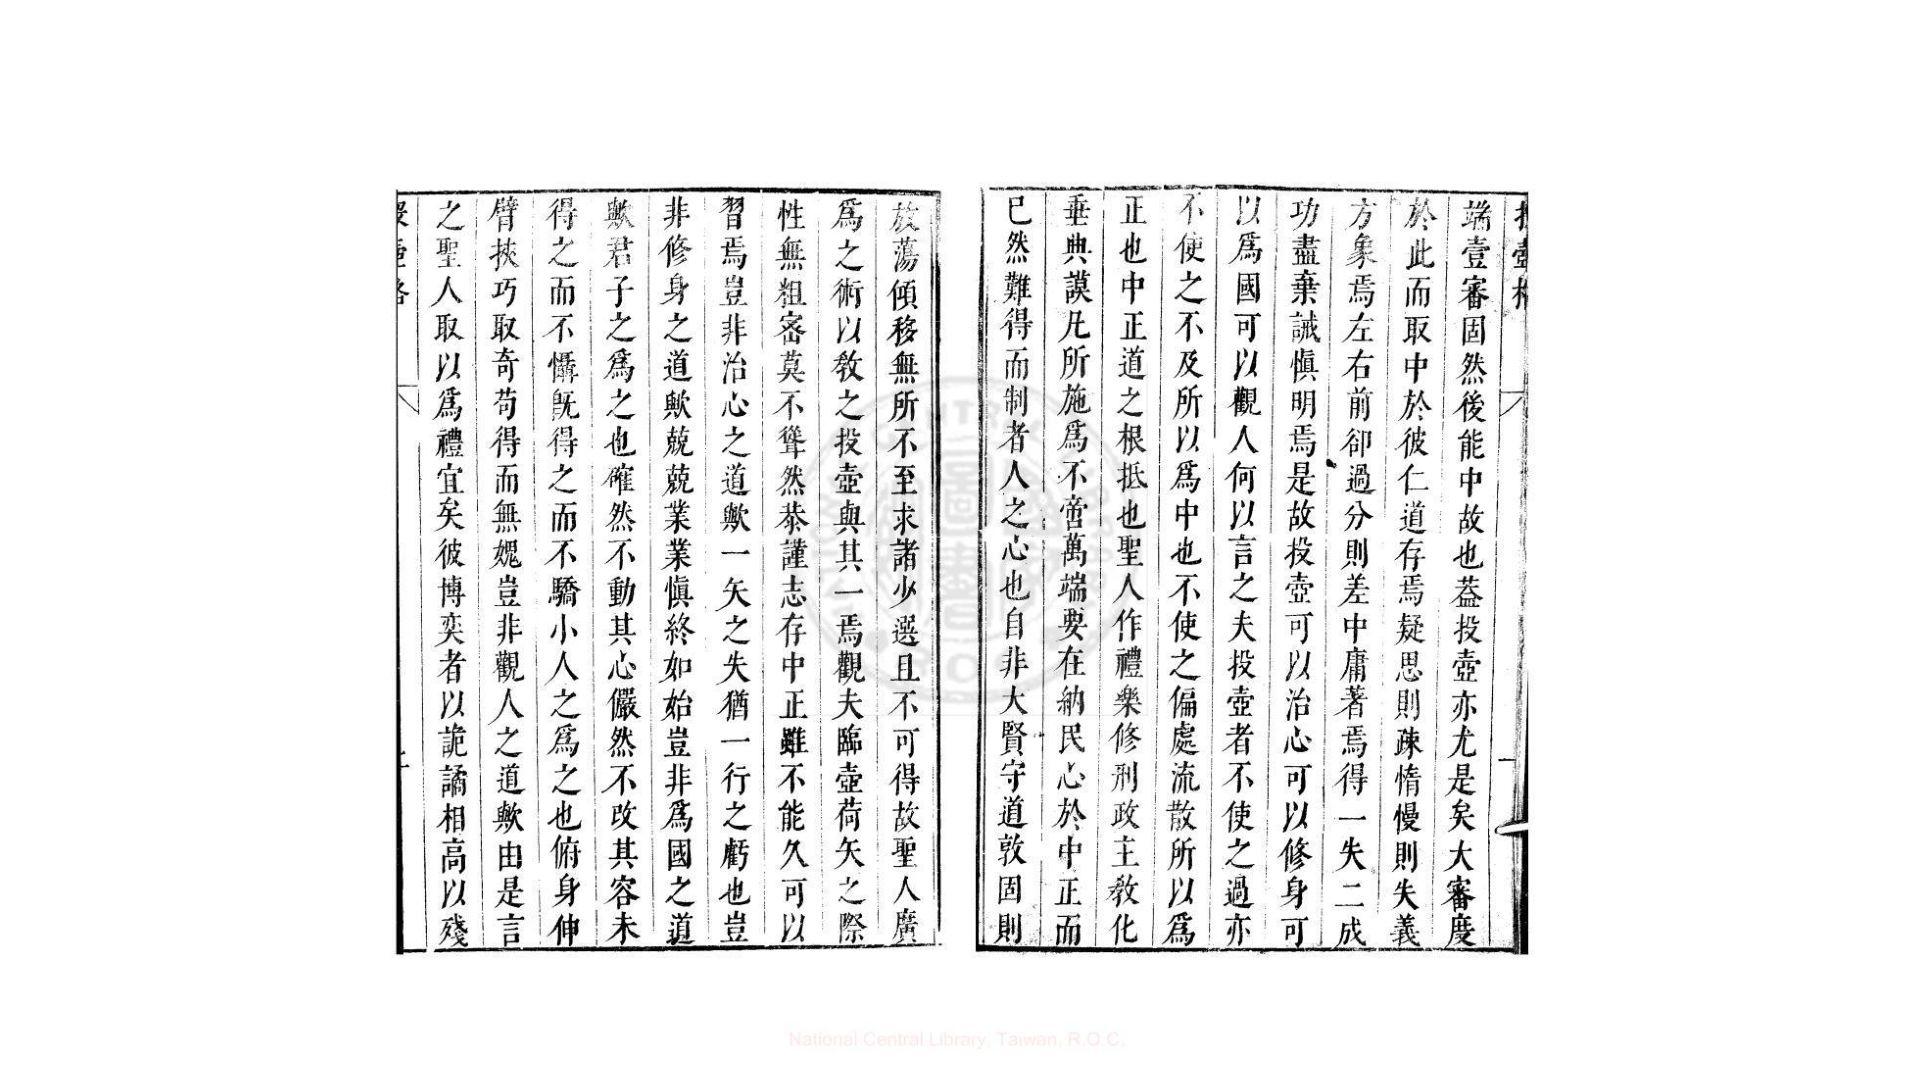 端壹審固然後能中故也葢投壺亦尤是矣大審度
於此而取中於彼仁道存焉疑思則疎惰慢則失義
方象焉左右前卻過分則差中庸著焉得一失二成
功盡棄誡愼明焉是故投壺可以治心可以修身可
以爲國可以觀人何以言之夫投壺者不使之過亦
不使之不及所以爲中也不使之偏處流散所以爲
正也中正道之根抵也聖人作禮樂修刑政主敎化
垂典謨凡所施爲不啻萬端要在納民心於中正而
已然難得而制者人之心也自非大賢守道敦固則
放蕩傾移無所不至求諸少選且不可得故聖人廣
爲之術以敎之投壺與其一焉觀夫臨壺荷矢之際
性無粗密莫不聳然恭謹志存中正雖不能久可以
習焉豈非治心之道歟一矢之失猶一行之虧也豈
非修身之道歟兢兢業業愼終如始豈非爲國之道
歟君子之爲之也確然不動其心儼然不改其容未
得之而不懾旣得之而不驕小人之爲之也俯身伸
臂挾巧取奇苟得而無媿豈非觀人之道歟由是言
之聖人取以爲禮宜矣彼博奕者以詭譎相高以殘